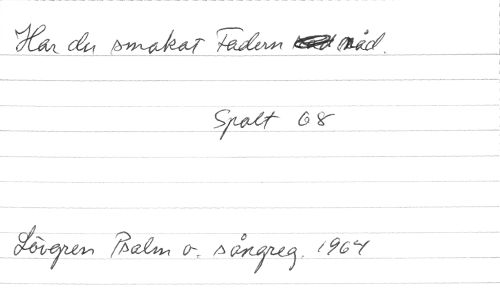 Har du smakat Fadern nåd.
Spalt 68
Lövgren Psalm o. sångreg. 1964